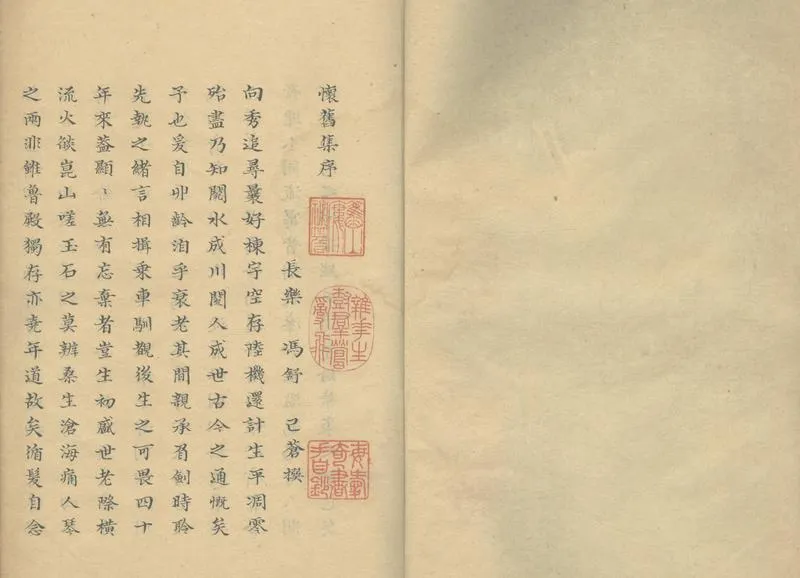 懷舊集序
長樂馮舒己蒼撰
向秀追尋曩好棟宇空存陸機還計生平凋零
殆盡乃知閱水成川閱人成世古今之通慨矣
予也爰自丱齡洎乎衰老其間親承肩劍時聆
先執之緒言相揖乘車馴觀後生之可畏四十
年來葢顯〻無有忘棄者豈生初盛世老際橫
流火燄崑山嗟玉石之莫辨桑生滄海痛人琴
之兩非雖魯殿獨存亦堯年道故矣循髮自念